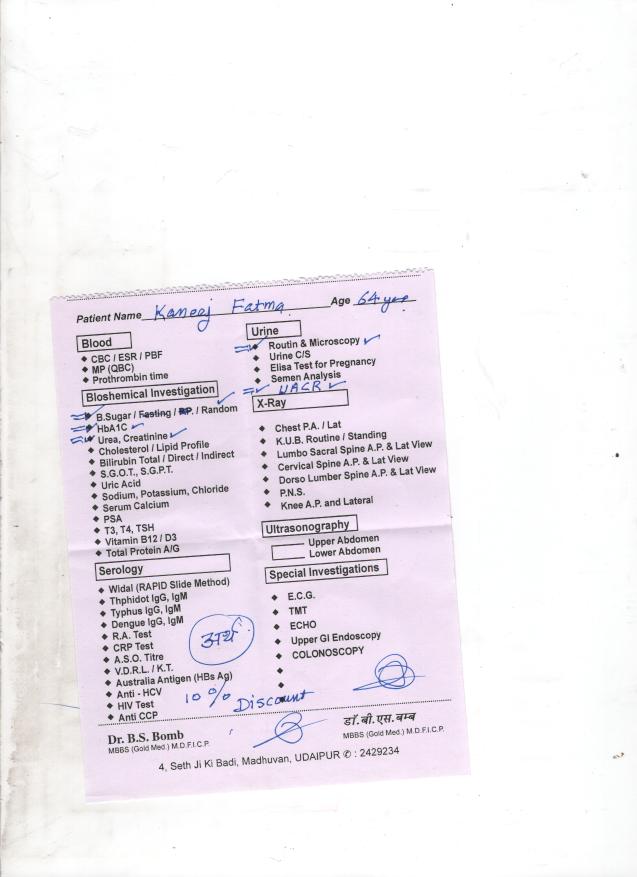 Patient Name Kaneej Fatma Age 64 yrs
Blood
◆ CBC / ESR / PBF
◆ MP (QBC)
◆ Prothrombin time
Bioshemical Investigation
◆ B.Sugar / Fasting / PP. / Random
◆ HbA1C
◆ Urea, Creatinine
◆ Cholesterol / Lipid Profile
◆ Bilirubin Total / Direct / Indirect
◆ S.G.O.T., S.G.P.T.
◆ Uric Acid
◆ Sodium, Potassium, Chloride
◆ Serum Calcium
◆ PSA
◆ T3, T4, TSH
◆ Vitamin B12 / D3
◆ Total Protein A/G
Serology
◆ Widal (RAPID Slide Method)
◆ Thphidot IgG, IgM
◆ Typhus IgG, IgM
◆ Dengue IgG, IgM
◆ R.A. Test
◆ CRP Test
◆ A.S.O. Titre
◆ V.D.R.L. / K.T.
◆ Australia Antigen (HBs Ag)
◆ Anti - HCV
◆ HIV Test
◆ Anti CCP
Urine
◆ Routin & Microscopy
◆ Urine C/S
◆ Elisa Test for Pregnancy
◆ Semen Analysis
UACR
X-Ray
◆ Chest P.A. / Lat
◆ K.U.B. Routine / Standing
◆ Lumbo Sacral Spine A.P. & Lat View
◆ Cervical Spine A.P. & Lat View
◆ Dorso Lumber Spine A.P. & Lat View
◆ P.N.S.
◆ Knee A.P. and Lateral
Ultrasonography
Upper Abdomen
Lower Abdomen
Special Investigations
◆ E.C.G.
◆ TMT
◆ ECHO
◆ Upper GI Endoscopy
◆ COLONOSCOPY
◆
◆
अर्थ
10% Discount
Dr. B.S. Bomb
MBBS (Gold Med.) M.D.F.I.C.P.
डॉ. बी. एस. बम्ब
MBBS (Gold Med.) M.D.F.I.C.P.
4, Seth Ji Ki Badi, Madhuvan, UDAIPUR ✆ : 2429234